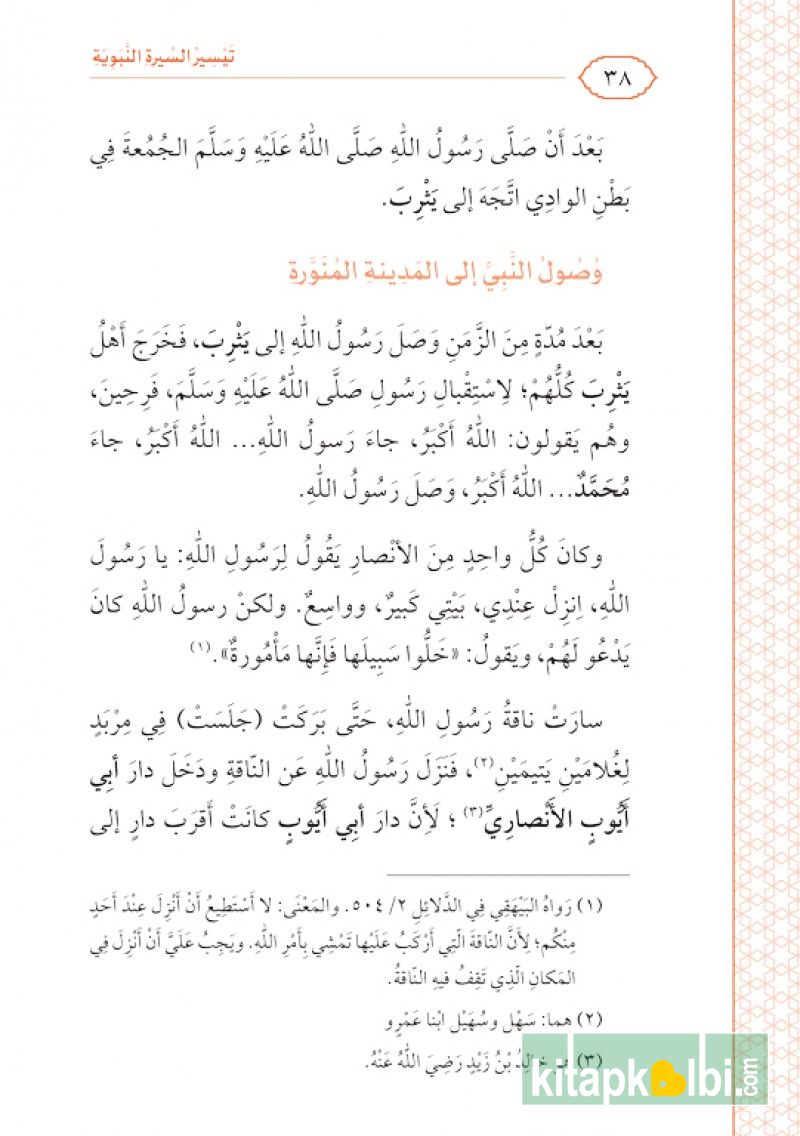 تَيْسِيرُ السِّيرةِ النَّبَوِيَّةِ
٣٨
بَعْدَ أَنْ صَلَّى رَسُولُ اللهِ صَلَّى اللهُ عَلَيْهِ وَسَلَّمَ الجُمُعةَ فِي
بَطْنِ الوادِي اتَّجَهَ إلى يَثْرِبَ.
وُصُولُ النَّبِيِّ إلى المَدِينةِ المُنَوَّرةِ
بَعْدَ مُدّةٍ مِنَ الزَّمَنِ وَصَلَ رَسُولُ اللهِ إلى يَثْرِبَ، فَخَرَجَ أَهْلُ
يَثْرِبَ كُلُّهُمْ؛ لِاسْتِقْبالِ رَسُولِ صَلَّى اللهُ عَلَيْهِ وَسَلَّمَ، فَرِحِينَ،
وهُم يَقولون: اللهُ أَكْبَرُ، جاءَ رَسولُ اللهِ... اللهُ أَكْبَرُ، جاءَ
مُحَمَّدٌ... اللهُ أَكْبَرُ، وَصَلَ رَسُولُ اللهِ.
وكانَ كُلُّ واحِدٍ مِنَ الأنْصارِ يَقُولُ لِرَسُولِ اللهِ: يا رَسُولَ
اللهِ، اِنزِلْ عِنْدِي، بَيْتِي كَبيرٌ، وواسِعٌ. ولكنْ رسولُ اللهِ كانَ
يَدْعُو لَهُمْ، ويَقولُ: «خَلُّوا سَبِيلَها فَإِنَّها مَأْمُورةٌ».(١)
سارَتْ ناقةُ رَسُولِ اللهِ، حَتَّى بَرَكَتْ (جَلَسَتْ) فِي مِرْبَدٍ
لِغُلامَيْنِ يَتيمَيْنِ(٢)، فَنَزَلَ رَسُولُ اللهِ عَن النّاقةِ ودَخَلَ دارَ أبي
أَيُّوبٍ الأَنْصاريِّ(٣) ؛ لَأِنَّ دارَ أبي أَيُّوبٍ كانَتْ أَقرَبَ دارٍ إلى
(١) رَواهُ البَيْهَقِي فِي الدَّلائِلِ ٢/ ٥٠٤. والمَعْنَى: لا أَسْتَطِيعُ أَنْ أَنْزِلَ عِنْدَ أَحَدٍ
مِنْكُم؛ لِأَنَّ النّاقةَ الَّتِي أَرْكَبُ عَلَيْها تَمْشِي بِأَمْرِ اللهِ. ويَجِبُ عَلَيَّ أَنْ أَنْزِلَ فِي
المَكانِ الَّذِي تَقِفُ فيهِ النّاقةُ.
(٢) هما: سَهْل وسُهَيْل ابْنا عَمْرٍو
(٣) هو خالِدُ بْنُ زَيْدٍ رَضِيَ اللهُ عَنْهُ.
kitapkalbi.com